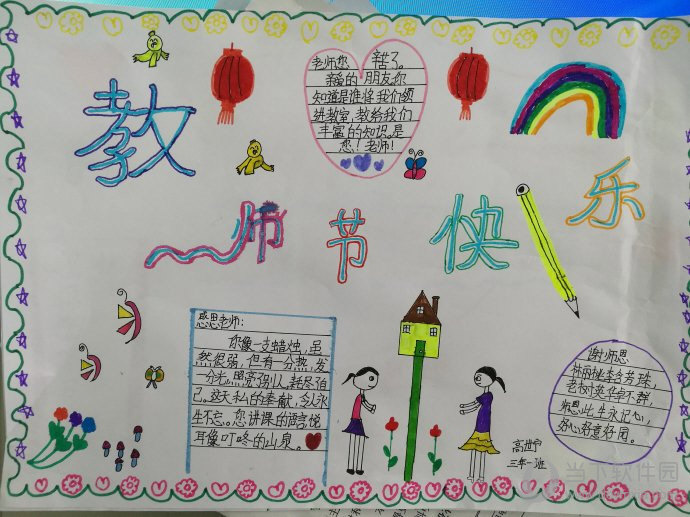 教
师 节 快 乐
老师您 辛苦了。
亲爱的朋友,你
知道是谁将我们领
进教室,教给我们
丰富的知识。是
您!老师!
感恩老师:
你像一支蜡烛,虽
然很弱,但有一分热,发
一分光,照亮别人,耗尽自
己。这天私的奉献,令人永
生不忘。您讲课的语言,悦
耳像叮咚的山泉。
谢师恩
桃园桃李含芳珠,
老树英华
师恩此生永记心,
好心好意好同。
高世宁
三年一班
当下软件园